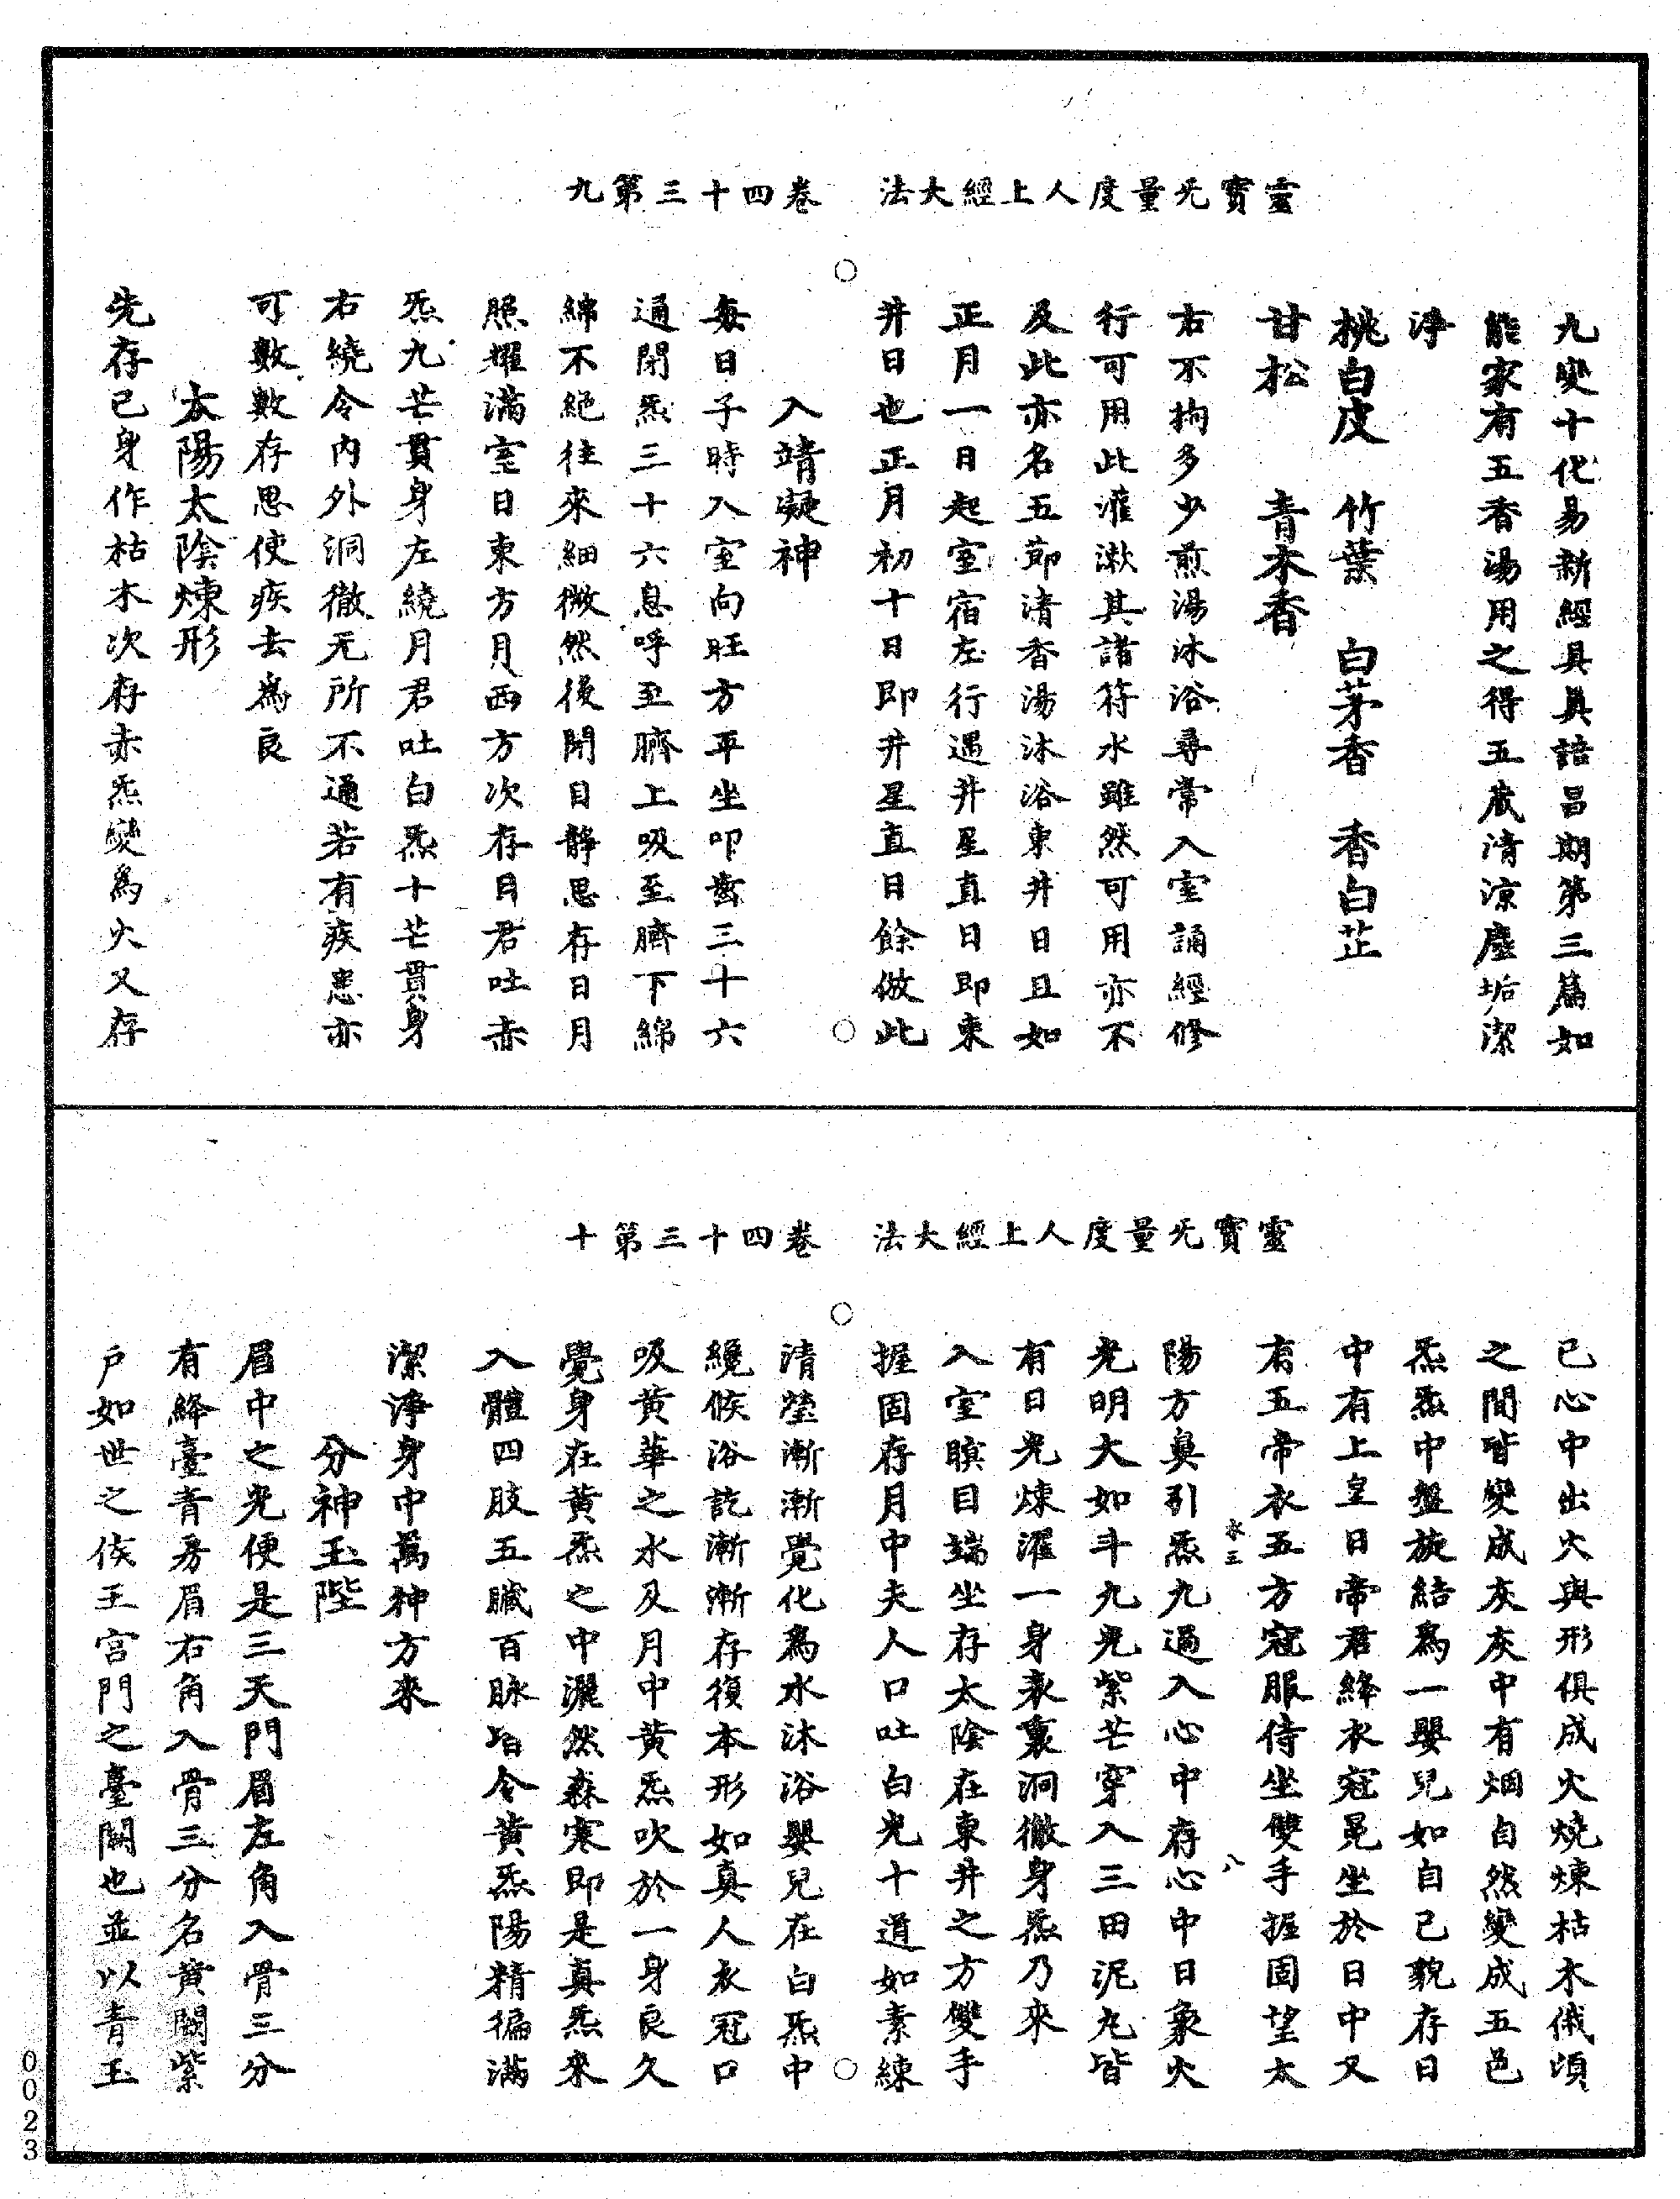 靈寶无量度人上經大法　卷四十三第九
九變十化易新經具眞誥昌期第三篇如
能家有五香湯用之得五藏清涼塵垢潔
淨
桃白皮　竹葉　白茅香　香白芷
甘松　青木香
右不拘多少煎湯沐浴尋常入室誦經修
行可用此灌漱其諸符水雖然可用亦不
及此亦名五節清香湯沐浴東井日且如
正月一日起室宿左行遇井星直日即東
井日也正月初十日即井星直日餘倣此
入靖凝神
每日子時入室向旺方平坐叩齒三十六
通閉炁三十六息呼至臍上吸至臍下綿
綿不絕往來細微然後閉目靜思存日月
照耀滿室日東方月西方次存日君吐赤
炁九芒貫身左繞月君吐白炁十芒貫身
右繞令內外洞徹无所不通若有疾患亦
可數數存思使疾去爲良
太陽太陰煉形
先存己身作枯木次存赤炁變爲火又存
靈寶无量度人上經大法　卷四十三第十
己心中出火與形俱成火燒煉枯木俄頃
之間皆變成灰灰中有烟自然變成五色
炁炁中盤旋結爲一嬰兒如自己貌存日
中有上皇日帝君絳衣冠冕坐於日中又
有五帝衣五方冠服侍坐雙手握固望太
水三　八
陽方鼻引炁九過入心中存心中日象火
光明大如斗九光紫芒穿入三田泥丸皆
有日光煉濯一身表裏洞徹身炁乃來
入室瞑目端坐存太陰在東井之方雙手
握固存月中夫人口吐白光十道如素練
清瑩漸漸覺化爲水沐浴嬰兒在白炁中
纔候浴訖漸漸存復本形如真人衣冠口
吸黃華之水及月中黃炁吹於一身良久
覺身在黃炁之中灑然森寒即是真炁來
入體四肢五臟百脉皆令黃炁陽精徧滿
潔淨身中萬神方來
分神玉陛
眉中之光便是三天門眉左角入骨三分
有絳臺青房眉右角入骨三分名黃闕紫
戶如世之侯王宮門之臺闕也並以青玉
0023